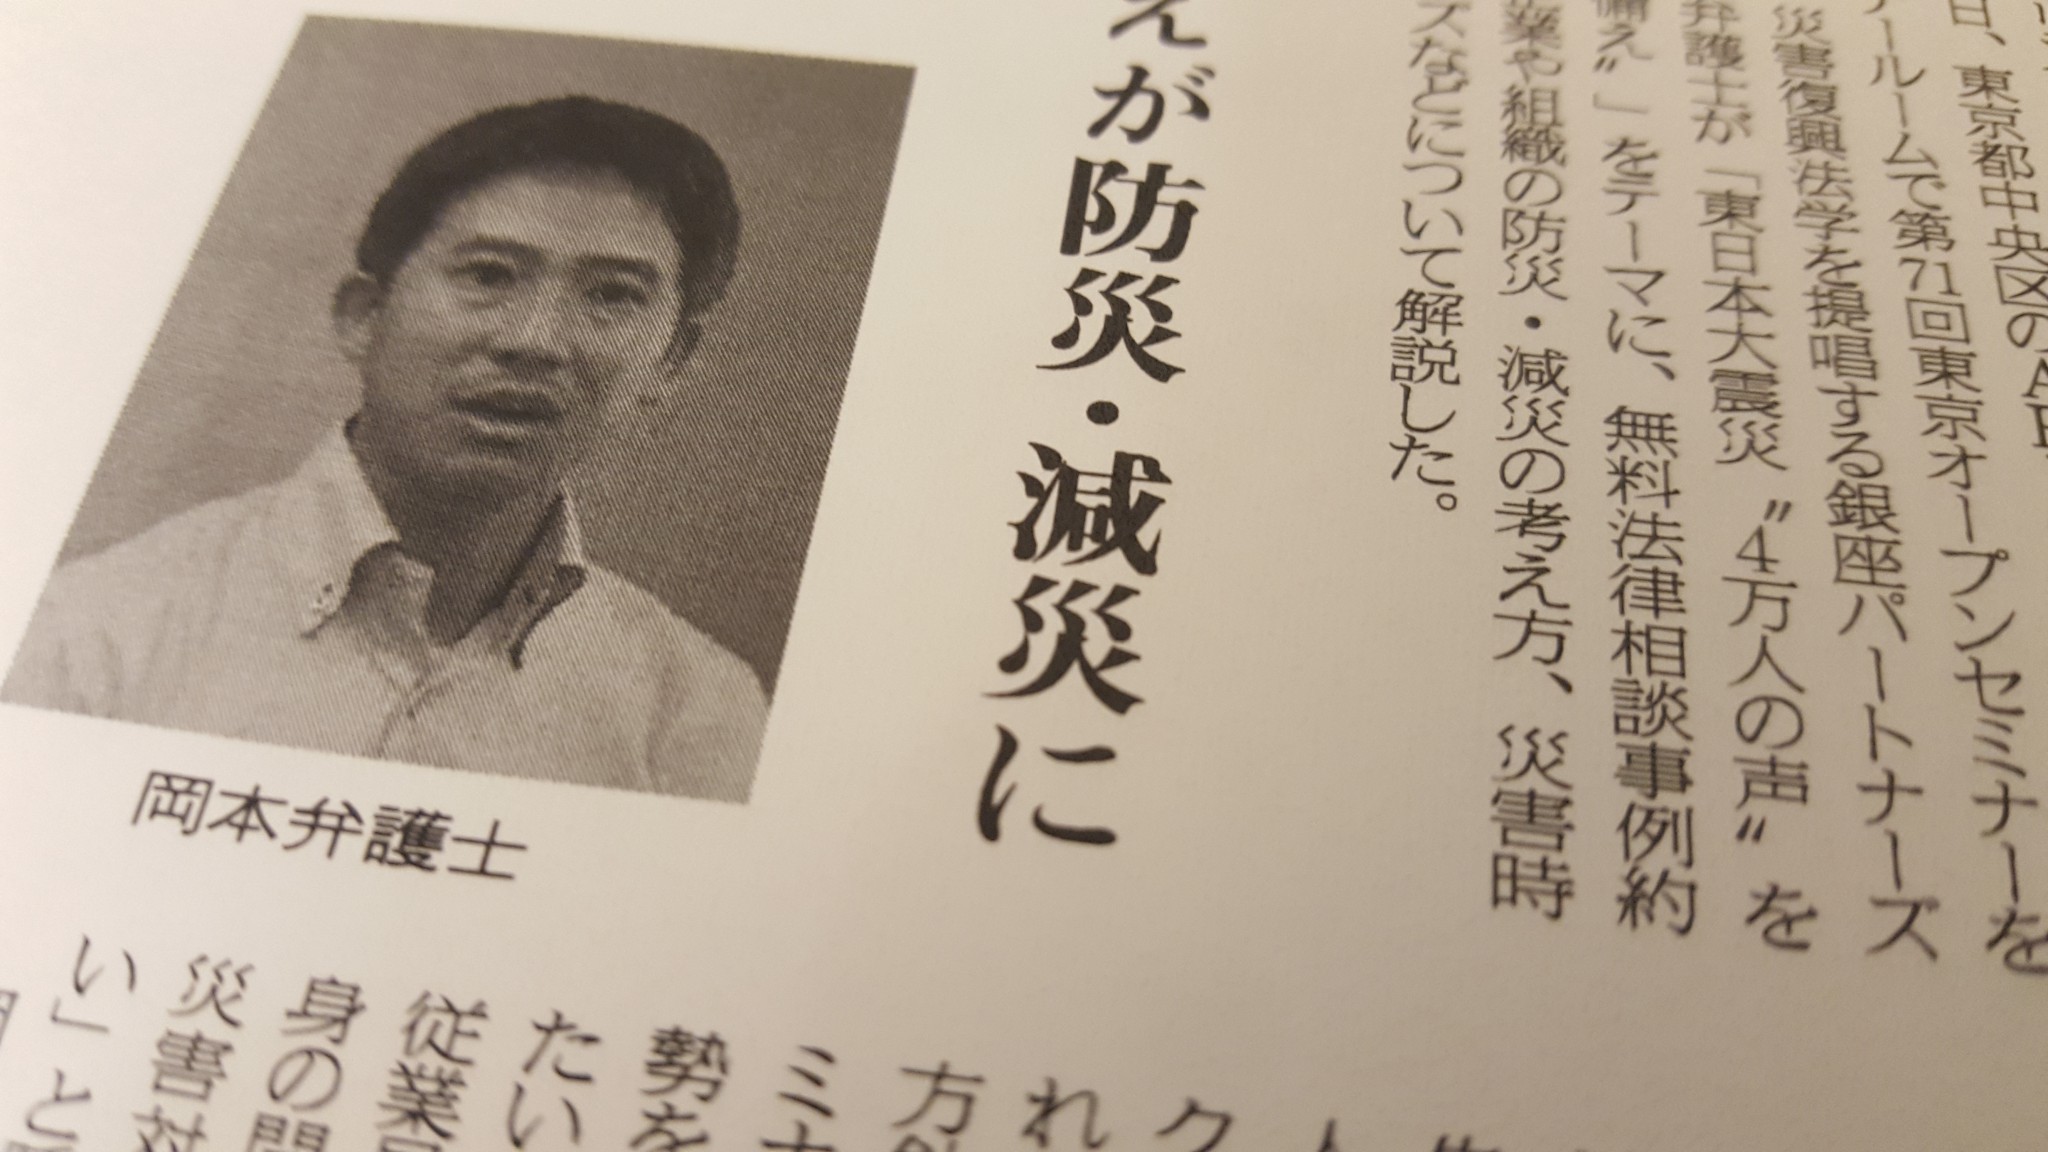 日、東京都中央区の
ールームで第71回東京オープンセミナーを
災害復興法学を提唱する銀座パートナーズ
弁護士が「東日本大震災〝4万人の声〟を
備え〟」をテーマに、無料法律相談事例約
業や組織の防災・減災の考え方、災害時
ズなどについて解説した。
えが防災・減災に
岡本弁護士
れ
方
ミナ
勢を
たい
従業
身の問
災害対
い」と